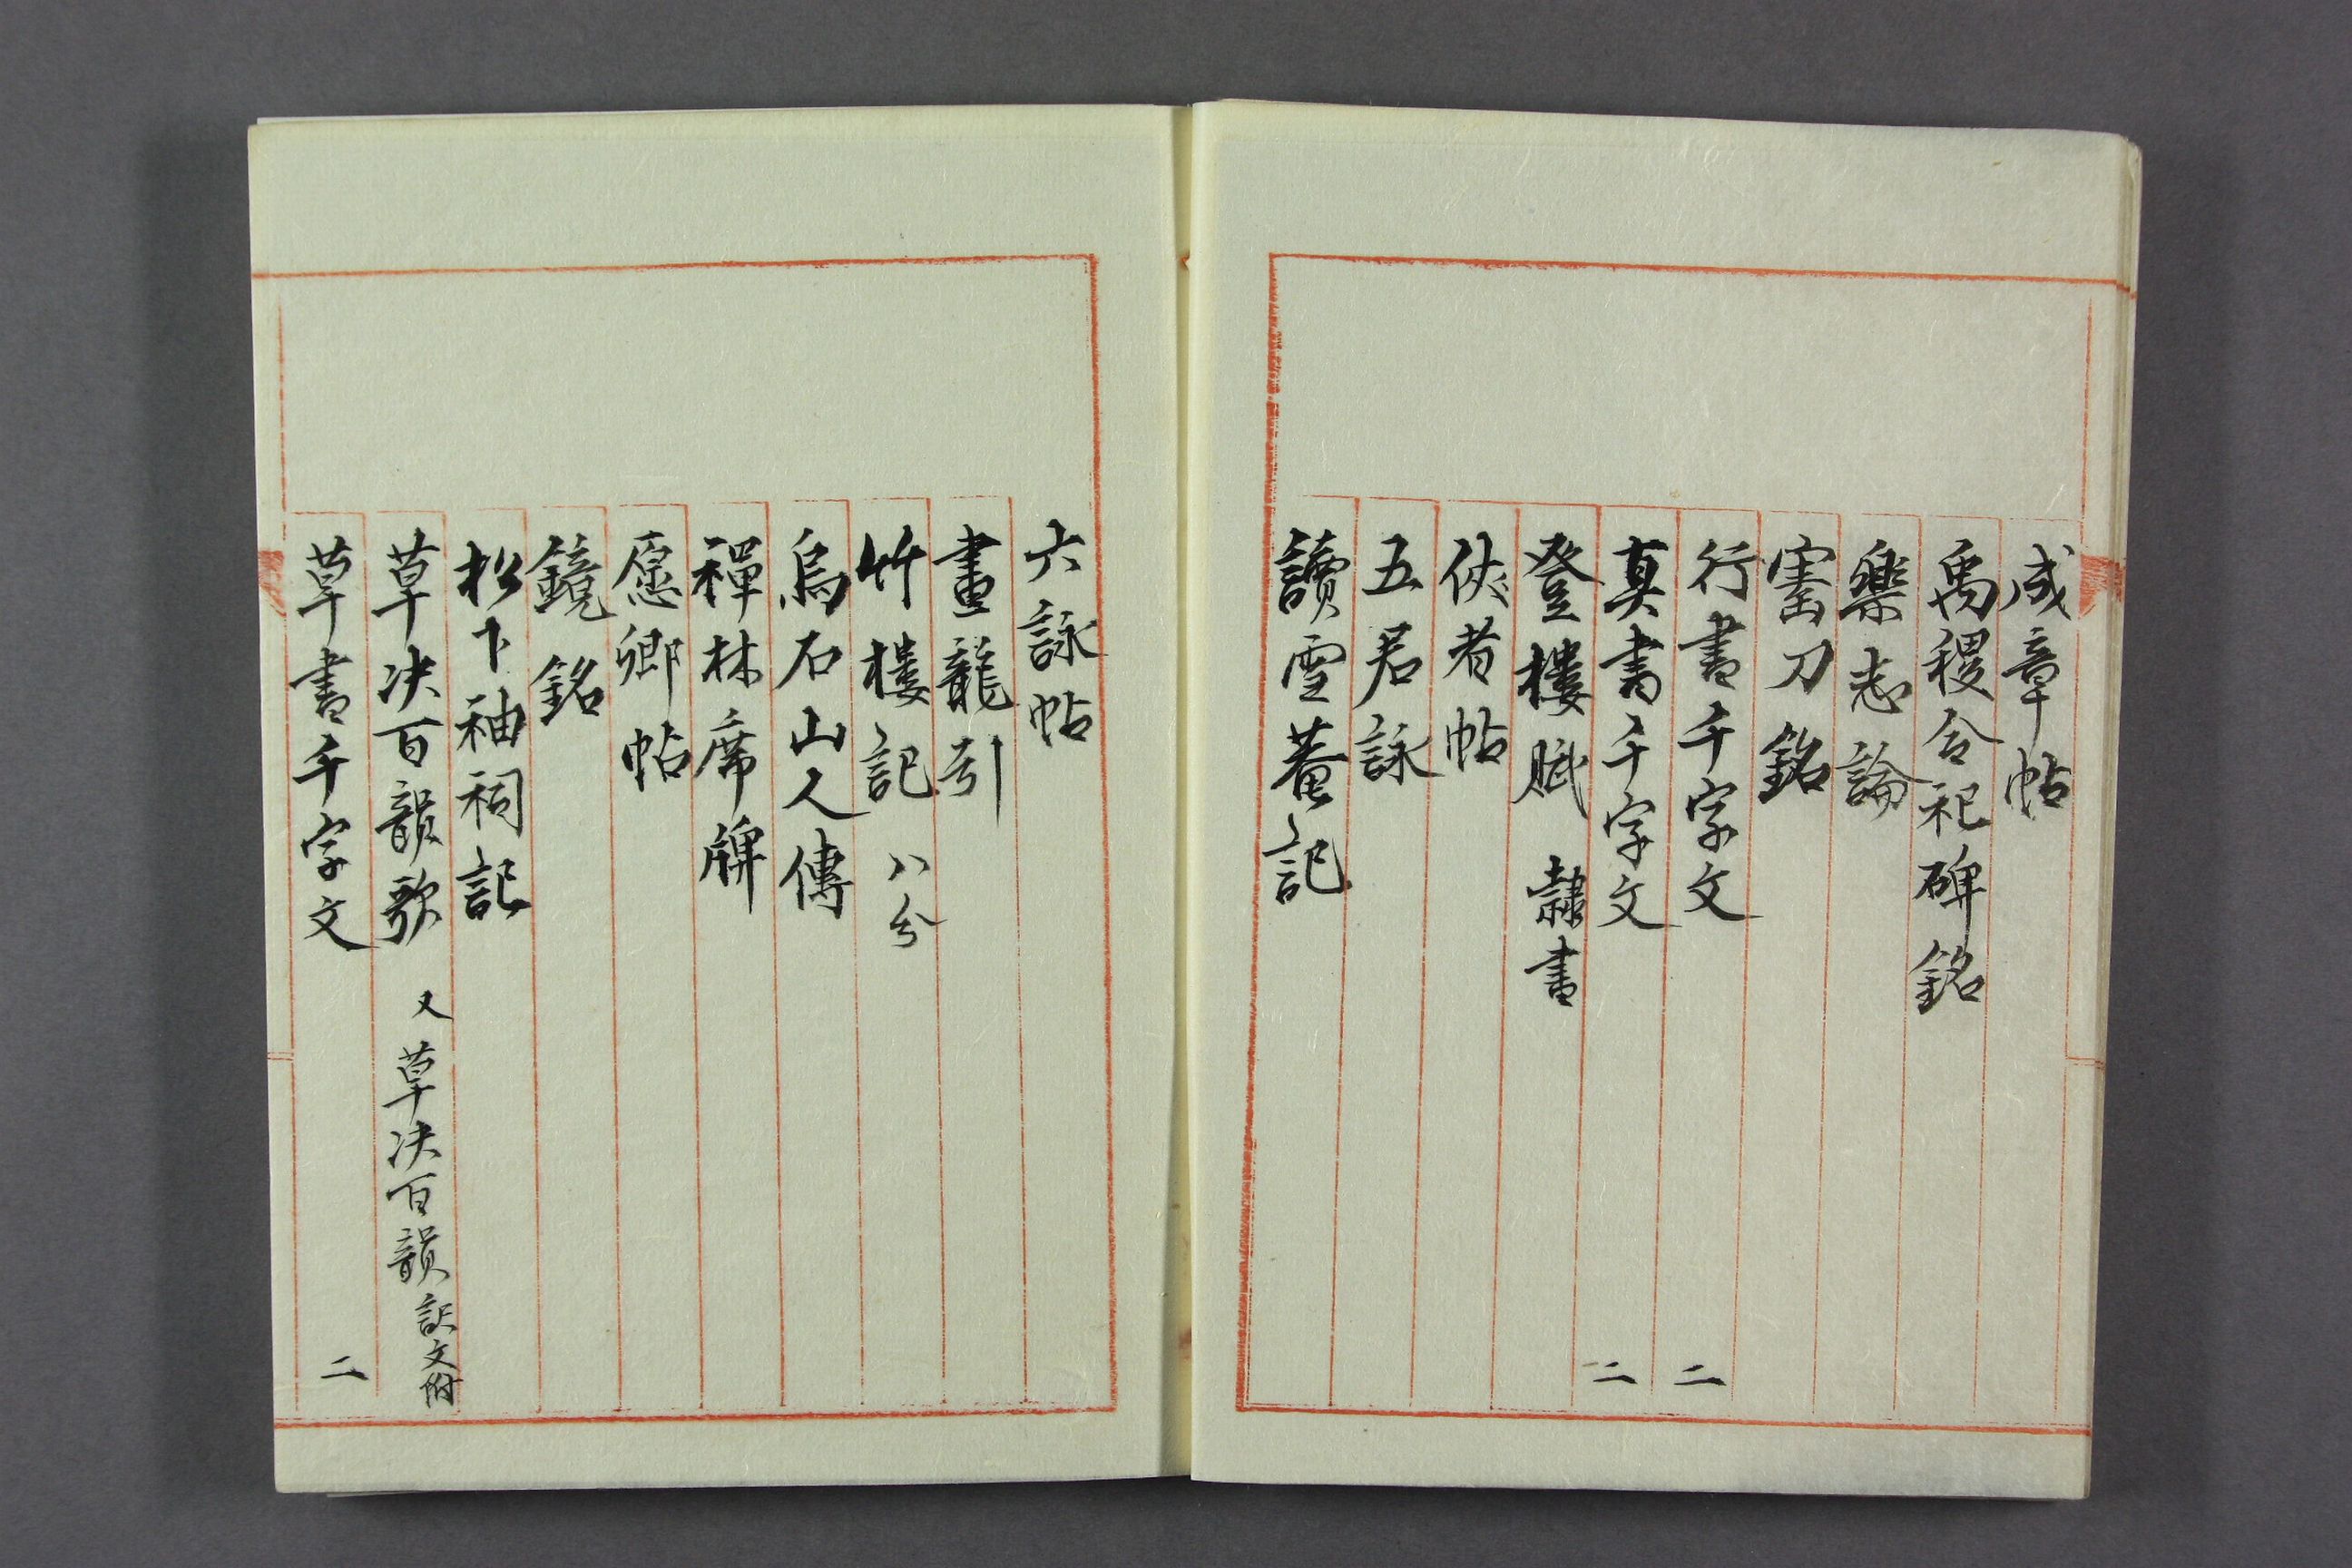 成章帖
禹稷合祀碑銘
樂志論
寳刀銘
行書千字文 二
真書千字文 二
登樓賦 隷書
俠者帖
五君詠
讀雪菴記
六詠帖
畫龍引
竹樓記 八分
烏石山人傳
禪林席牌
愿卿帖
鏡銘
松下祠記
草决百韻歌 又草决百韻 訳文附
草書千字文 二